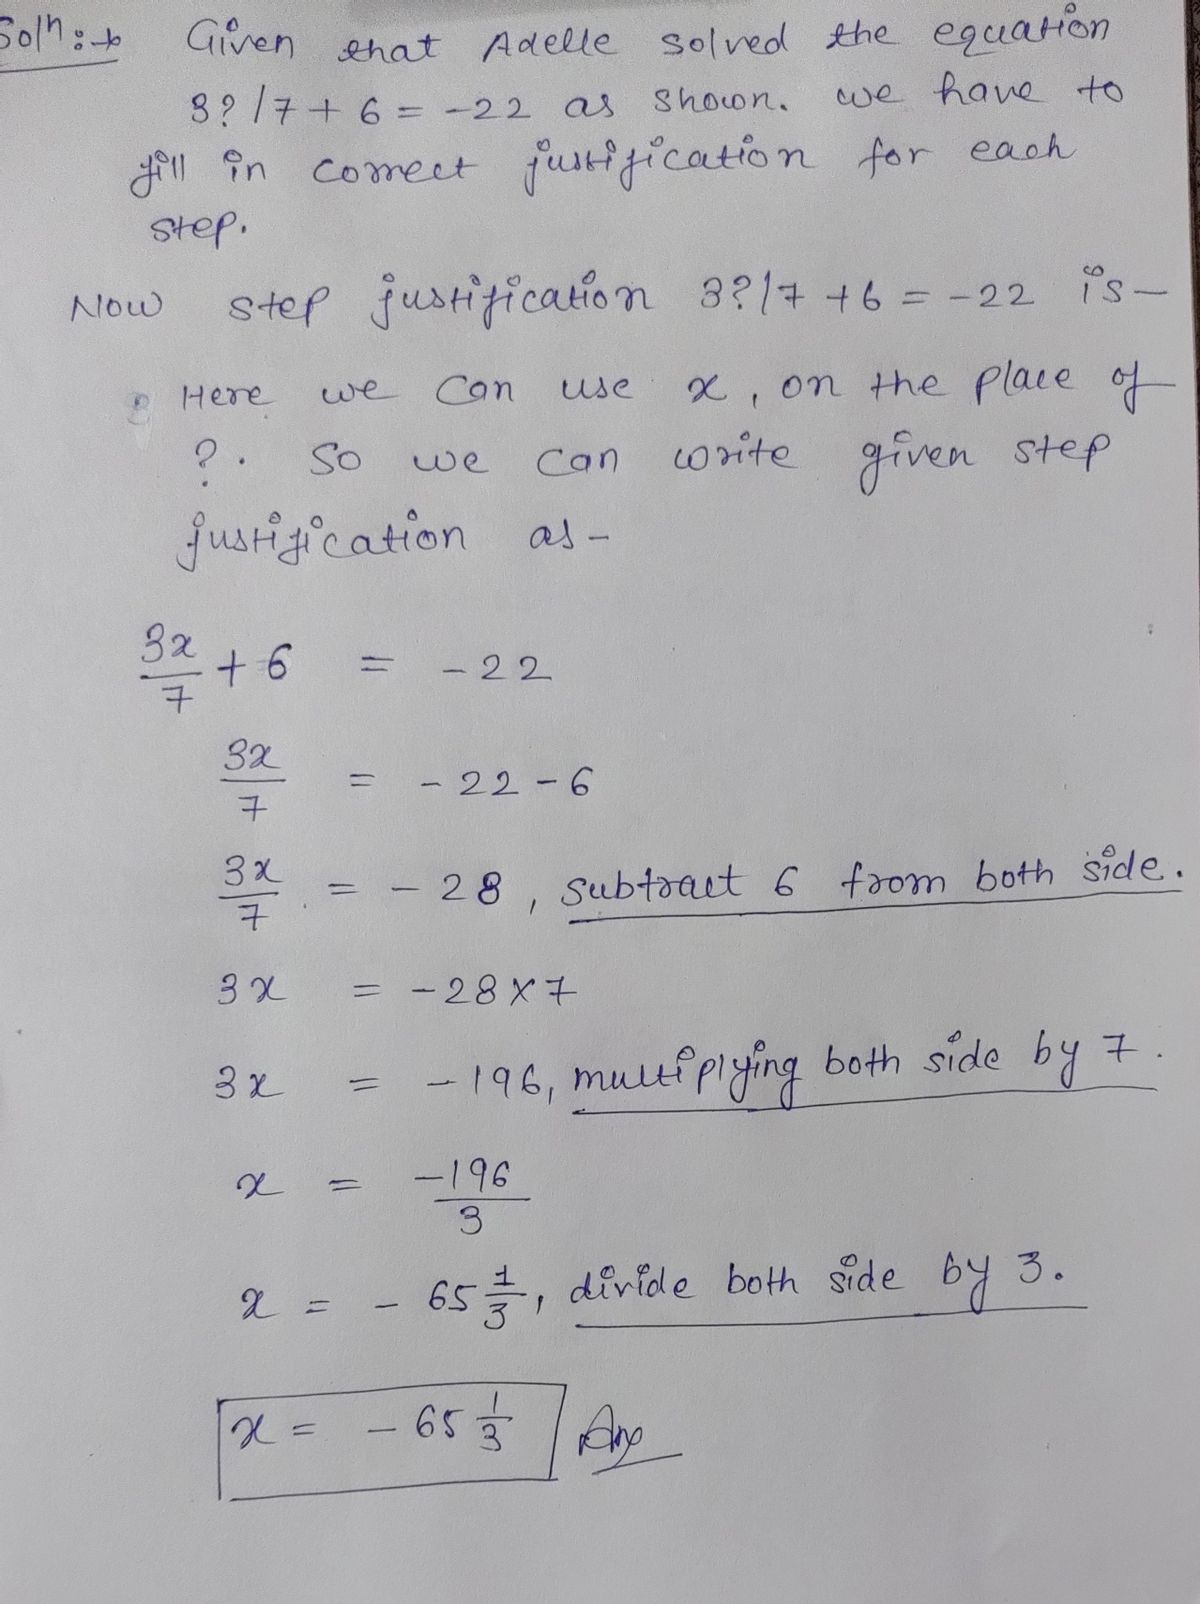 Solⁿ:→ Given that Adelle solved the equation
3?/7+6 = -22 as shown. we have to
fill in correct justification for each
step.
Now step justification 3?/7 +6 = -22 is-
Here we can use x, on the place of
?. So we can write given step
justification as-
3x/7 + 6 = -22
3x/7 = -22-6
3x/7 = -28, subtract 6 from both side.
3x = -28×7
3x = -196, multiplying both side by 7.
x = -196/3
x = -65 1/3, divide both side by 3.
x = -65 1/3 Ans